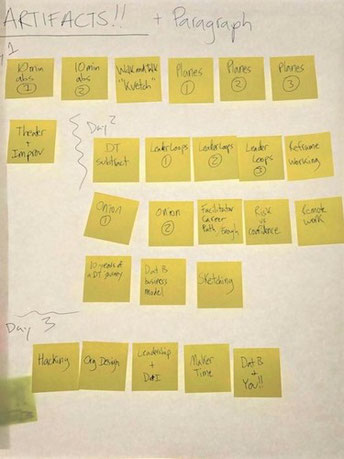 ARTIFACTS!! + Paragraph
1
10 min
abs
①
10 min
abs
②
Walk and talk
"Kvetch"
Planes
①
Planes
②
Planes
③
Theater
+
Improv
Day 2
DT
subtract
Leader Loops
①
Leader Loops
②
Leader
Loops
③
Reframe
Working
Onion
①
Onion
②
Facilitator
Career
Path
Risk
vs
confidence
Remote
Work
10 years of
a DT
DatB
business
model
Sketching
Day 3
Hacking
Org Design
Leadership
+
D+I
Maker
Time
DatB
+
You!!